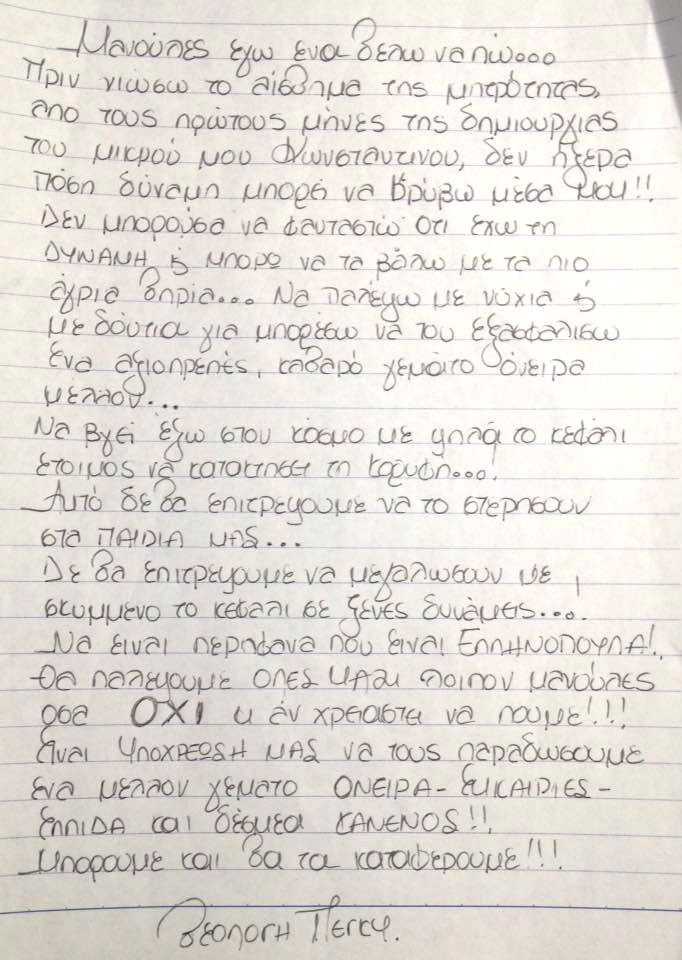 Μανούλες εγω ενα θελω να πω...
Πριν νιωσω το αίσθημα της μητρότητας,
απο τους πρώτους μήνες της δημιουργιας
του μικρού μου Κωνσταντινου, δεν ήξερα
πόση δύναμη μπορεί να κρύβω μέσα μου!!
Δεν μπορούσα να φανταστώ οτι εχω τη
ΔΥΝΑΜΗ & μπορω να τα βάλω με τα πιο
άγρια θηρία... Να παλέψω με νύχια &
με δόντια για μπορέσω να του εξασφαλισω
ένα αξιοπρεπές, καθαρό γεμάτο όνειρα
μελλον...
Να βγει έξω στον κόσμο με ψηλά το κεφάλι
έτοιμος να κατακτησει τη κορυφη...!
Αυτό δε θα επιτρεψουμε να το στερησουν
στα ΠΑΙΔΙΑ ΜΑΣ...
Δε θα επιτρεψουμε να μεγαλωσουν με
σκυμμενο το κεφαλι σε ξένες δυνάμεις....
Να ειναι περηφανα που ειναι ΕΛΛΗΝΟΠΟΥΛΑ!.
Θα παλεψουμε ΟΛΕΣ ΜΑΖΙ λοιπον μανούλες
οσα ΟΧΙ κι άν χρειαστει να πουμε!!!
Είναι ΥΠΟΧΡΕΩΣΗ ΜΑΣ να τους παραδωσουμε
ενα μελλον γεματο ΟΝΕΙΡΑ - ΕΥΚΑΙΡΙΕΣ -
ΕΛΠΙΔΑ και δέσμεα ΚΑΝΕΝΟΣ!!.
Μπορουμε και θα τα καταφερουμε!!!
Θεολογη